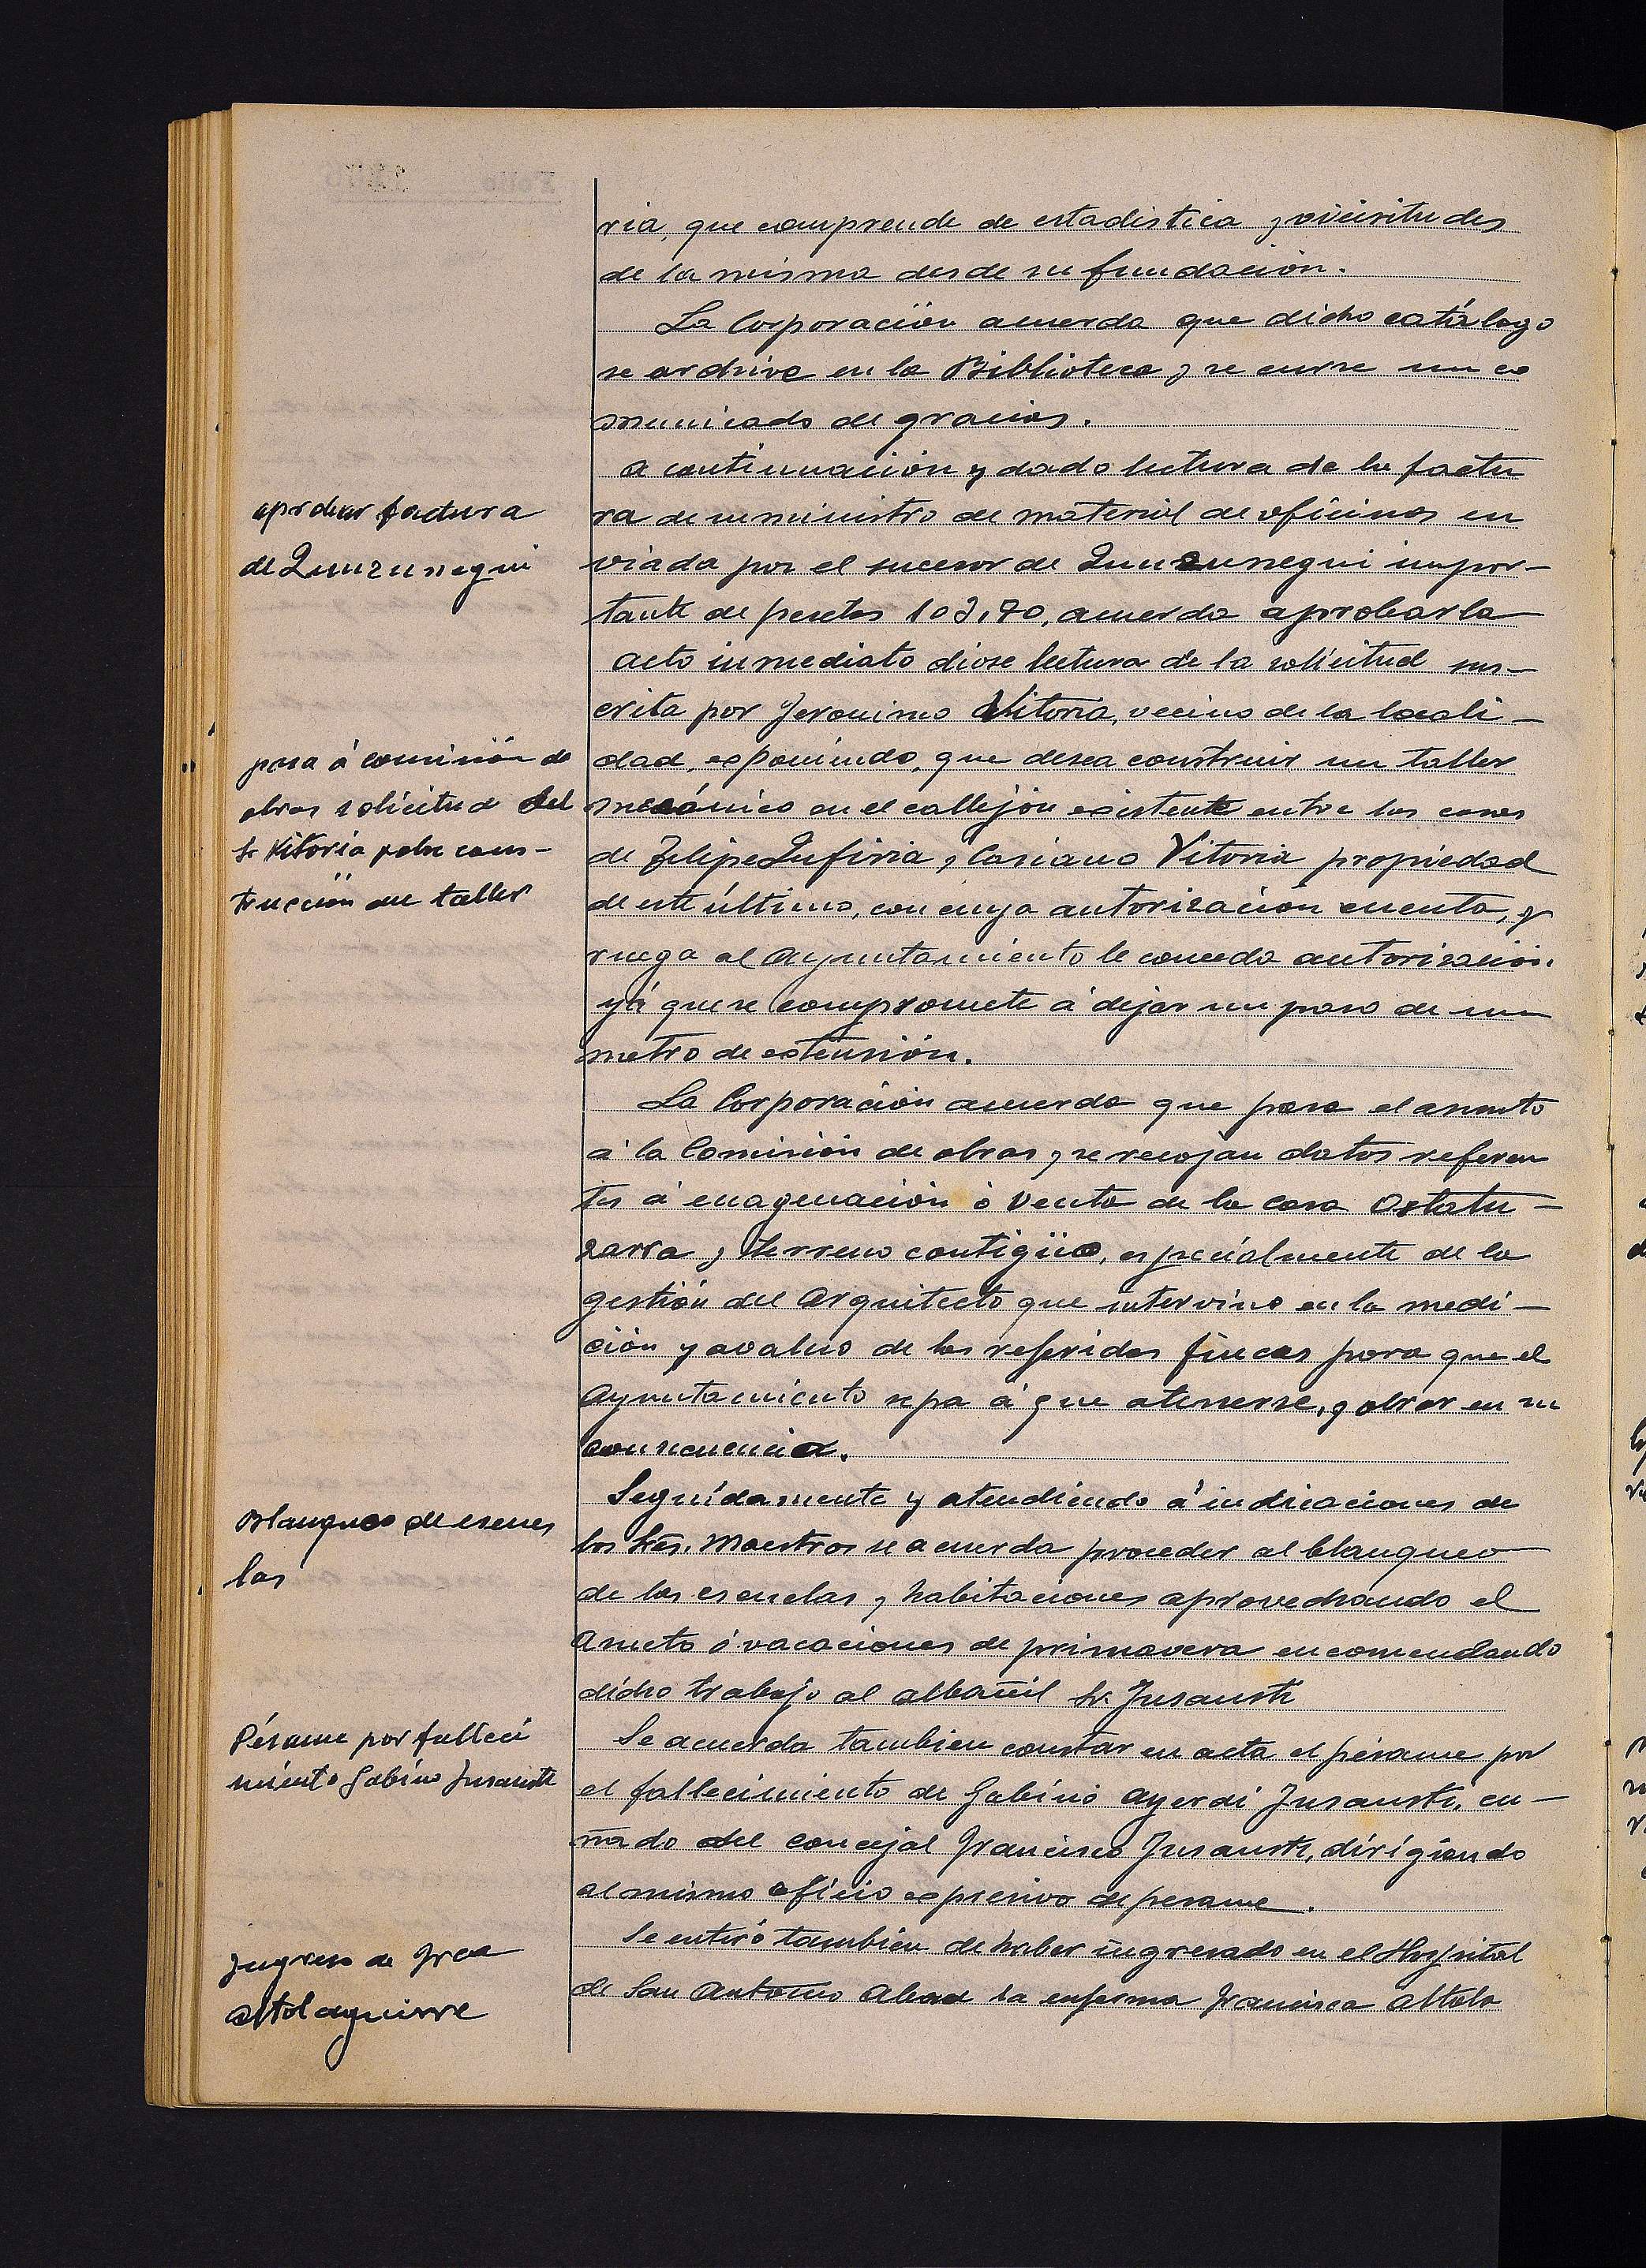 ria, que comprende de estadistica y vicisitudes
de la misma desde su fundación.
La Corporación acuerda que dicho catálogo
se archive en la Biblioteca y se curse un co
municado de gracias.
a continuación y dado lectura de la factu
ra de suministro de material de oficinas en
viada por el sucesor de Zunzunegui impor-
tante de pesetas 103,70, acuerda aprobarla
acto inmediato diose lectura de la solicitud sus-
crita por Jeronimo Vitoria, vecino de la locali-
dad, exponiendo, que desea construir un taller
mecánico en el callejón existente entre las casas
de Felipe Zufiria y Casiano Vitoria propiedad
de este último, con cuya autorización cuenta, y
ruega al Ayuntamiento le conceda autorización
yá que se compromete á dejar un paso de un
metro de extensión.
La Corporación acuerda que pase el asunto
á la Comisión de obras y se recojan datos referen
tes á enagenación ó venta de la casa Ostatu-
zarra y terreno contigüo, especialmente de la
gestión del Arquitecto que intervino en la medi-
ción y avaluo de las referidas fincas para que el
Ayuntamiento sepa á que atenerse, y obrar en su
consecuencia.
Seguidamente y atendiendo á indicaciones de
los Srés. Maestros se acuerda proceder al blanqueo
de las escuelas y habitaciones aprovechando el
Asueto ó vacaciones de primavera encomendando
dicho trabajo al albañil Sr. Insausti
Se acuerda tambien constar en acta el pésame por
el fallecimiento de Gabino Ayerdi Insausti, cu-
ñado del concejal Francisco Insausti, dirigiendo
al mismo oficio expresivo de pesame.
Se enteró tambien de haber ingresado en el Hospital
de San Antonio Abad la enferma Francisca Altola
aprobar factura
de Zunzunegui
pasa á comisión de
obras solicitud del
Sr Vitoria sobre cons-
trucción de taller
Blanqueo de escue
las
Pésame por falleci
miento Gabino Insausti
Ingreso de Frca
Altolaguirre
Folio